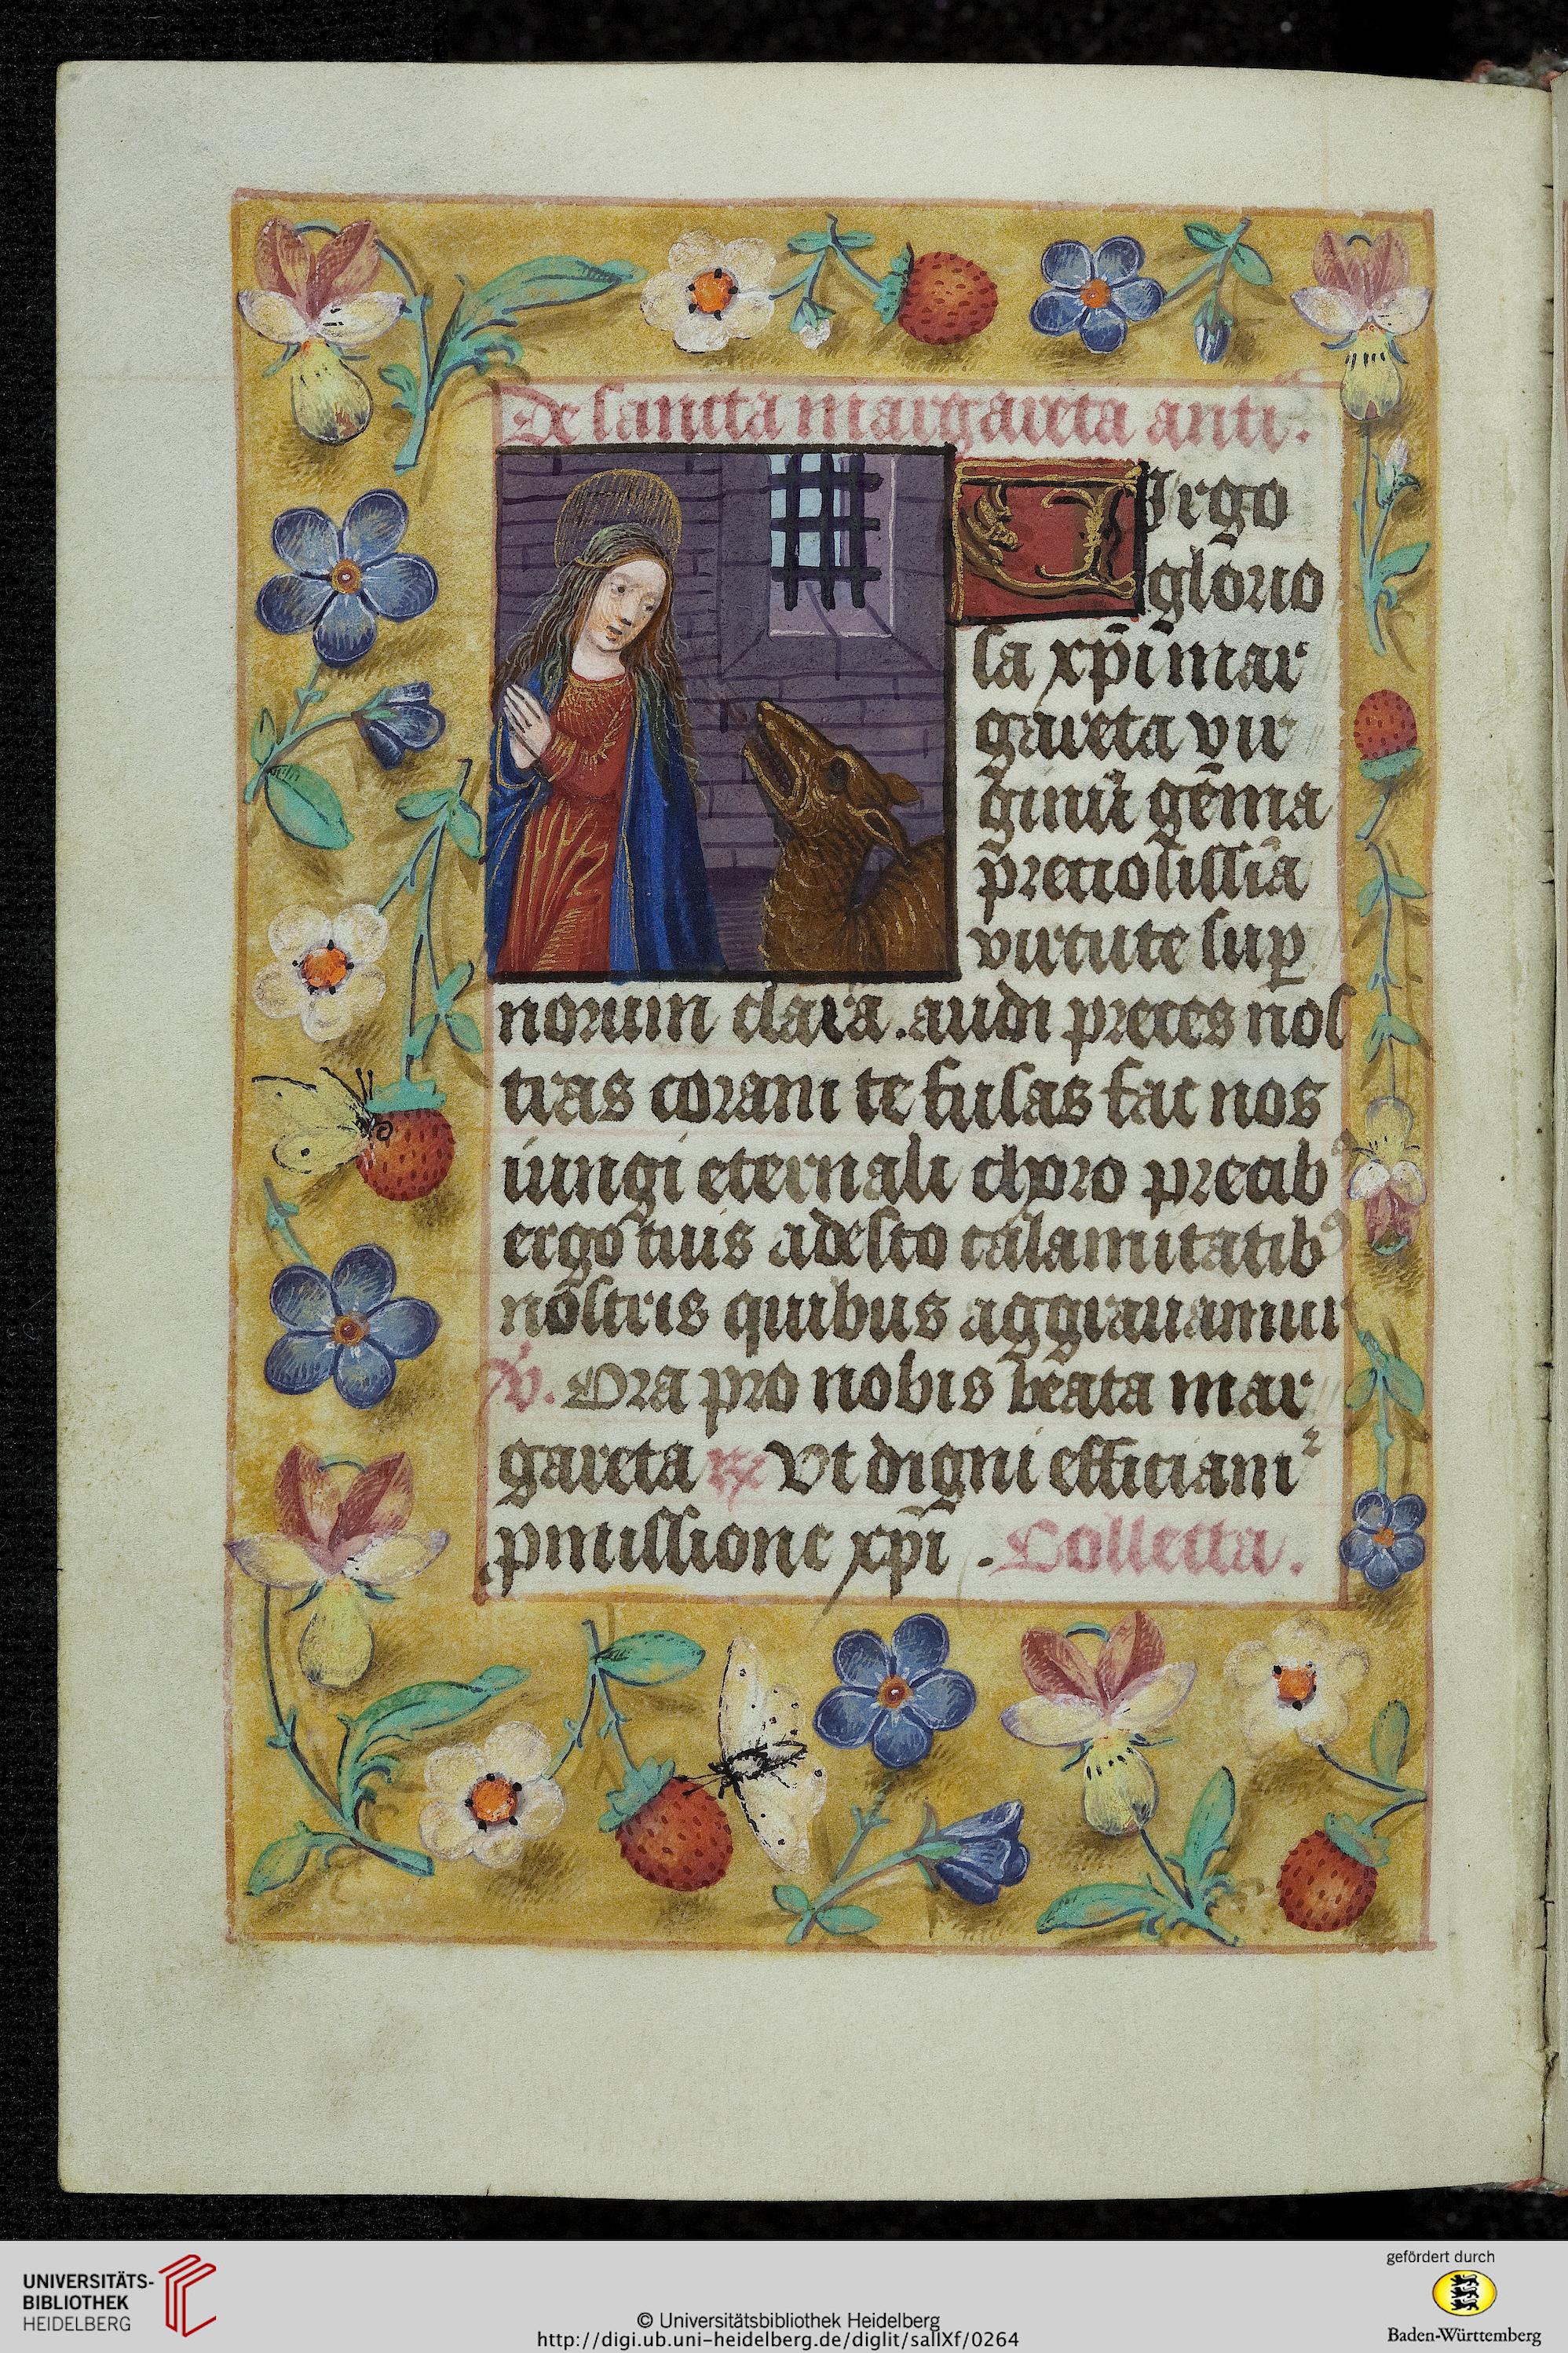 De sancta margareta anti.
VIrgo
glorio
sa xp̄i mar
gareta vir
ginū gēma
preciosissīa
virtute sup
norum clara . audi preces nos
tras coram te fusas fac nos
iungi eternali choro precibꝰ
ergo tuis adesto calamitatibꝰ
nostris quibus aggrauamur
℣. Ora pro nobis beata mar
gareta ℞ Vt digni efficiam²
pmissione xp̄i . Collecta.
UNIVERSITÄTS-
BIBLIOTHEK
HEIDELBERG
© Universitätsbibliothek Heidelberg
http://digi.ub.uni-heidelberg.de/diglit/salIXf/0264
gefördert durch
Baden-Württemberg